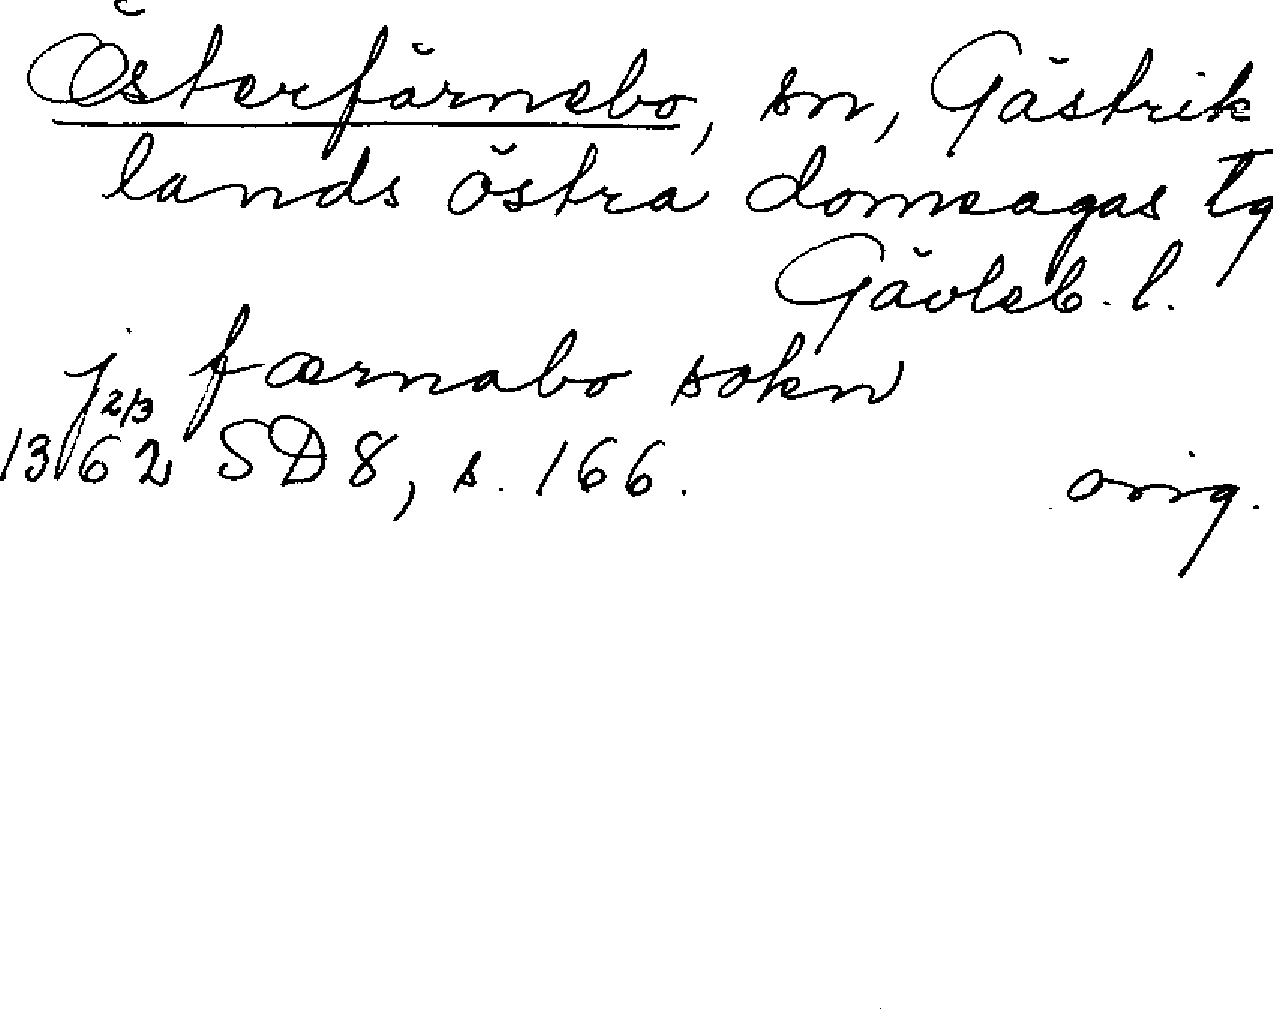 Österfärnebo, sn, Gästrik
lands östra domsagas tg
Gävleb. l.
j færnabo sokn
2/3
1362 SD 8, s. 166. orig.